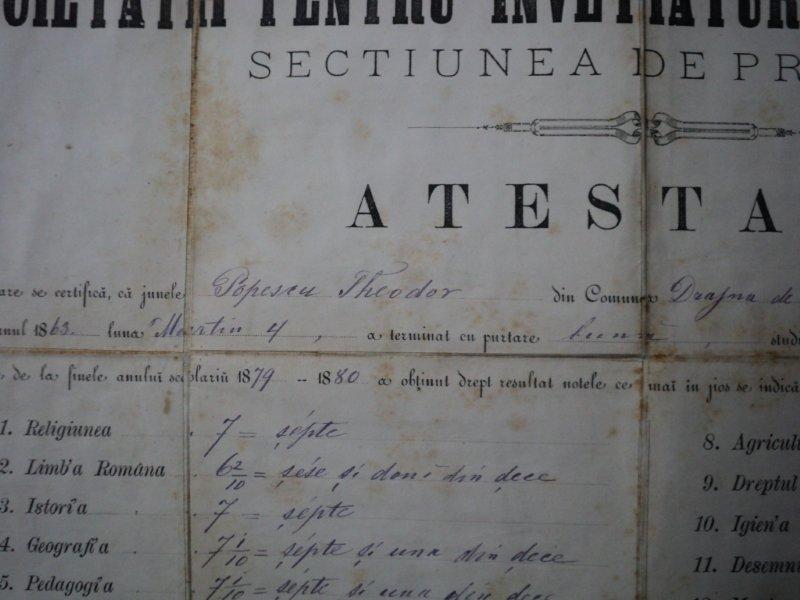 PENTRU
SECTIUNEA DE PR
ATESTA
are se certifică, că junele Popescu Theodor din Comuna Drajna de
nul 1863 luna Martiu 4, a terminat cu purtare bună, studi
de la finele anului scolariŭ 1879 - 1880 a obținut drept resultat notele ce maĭ în jios se indică
1. Religiunea 7 = șépte
2. Limb'a Română 6 2/10 = șése și doui din dece
3. Istori'a 7 = șépte
4. Geografi'a 7 1/10 = șépte și una din dece
5. Pedagogi'a 7 1/10 = șépte și una din dece
8. Agricul
9. Dreptul
10. Igien'a
11. Desemn